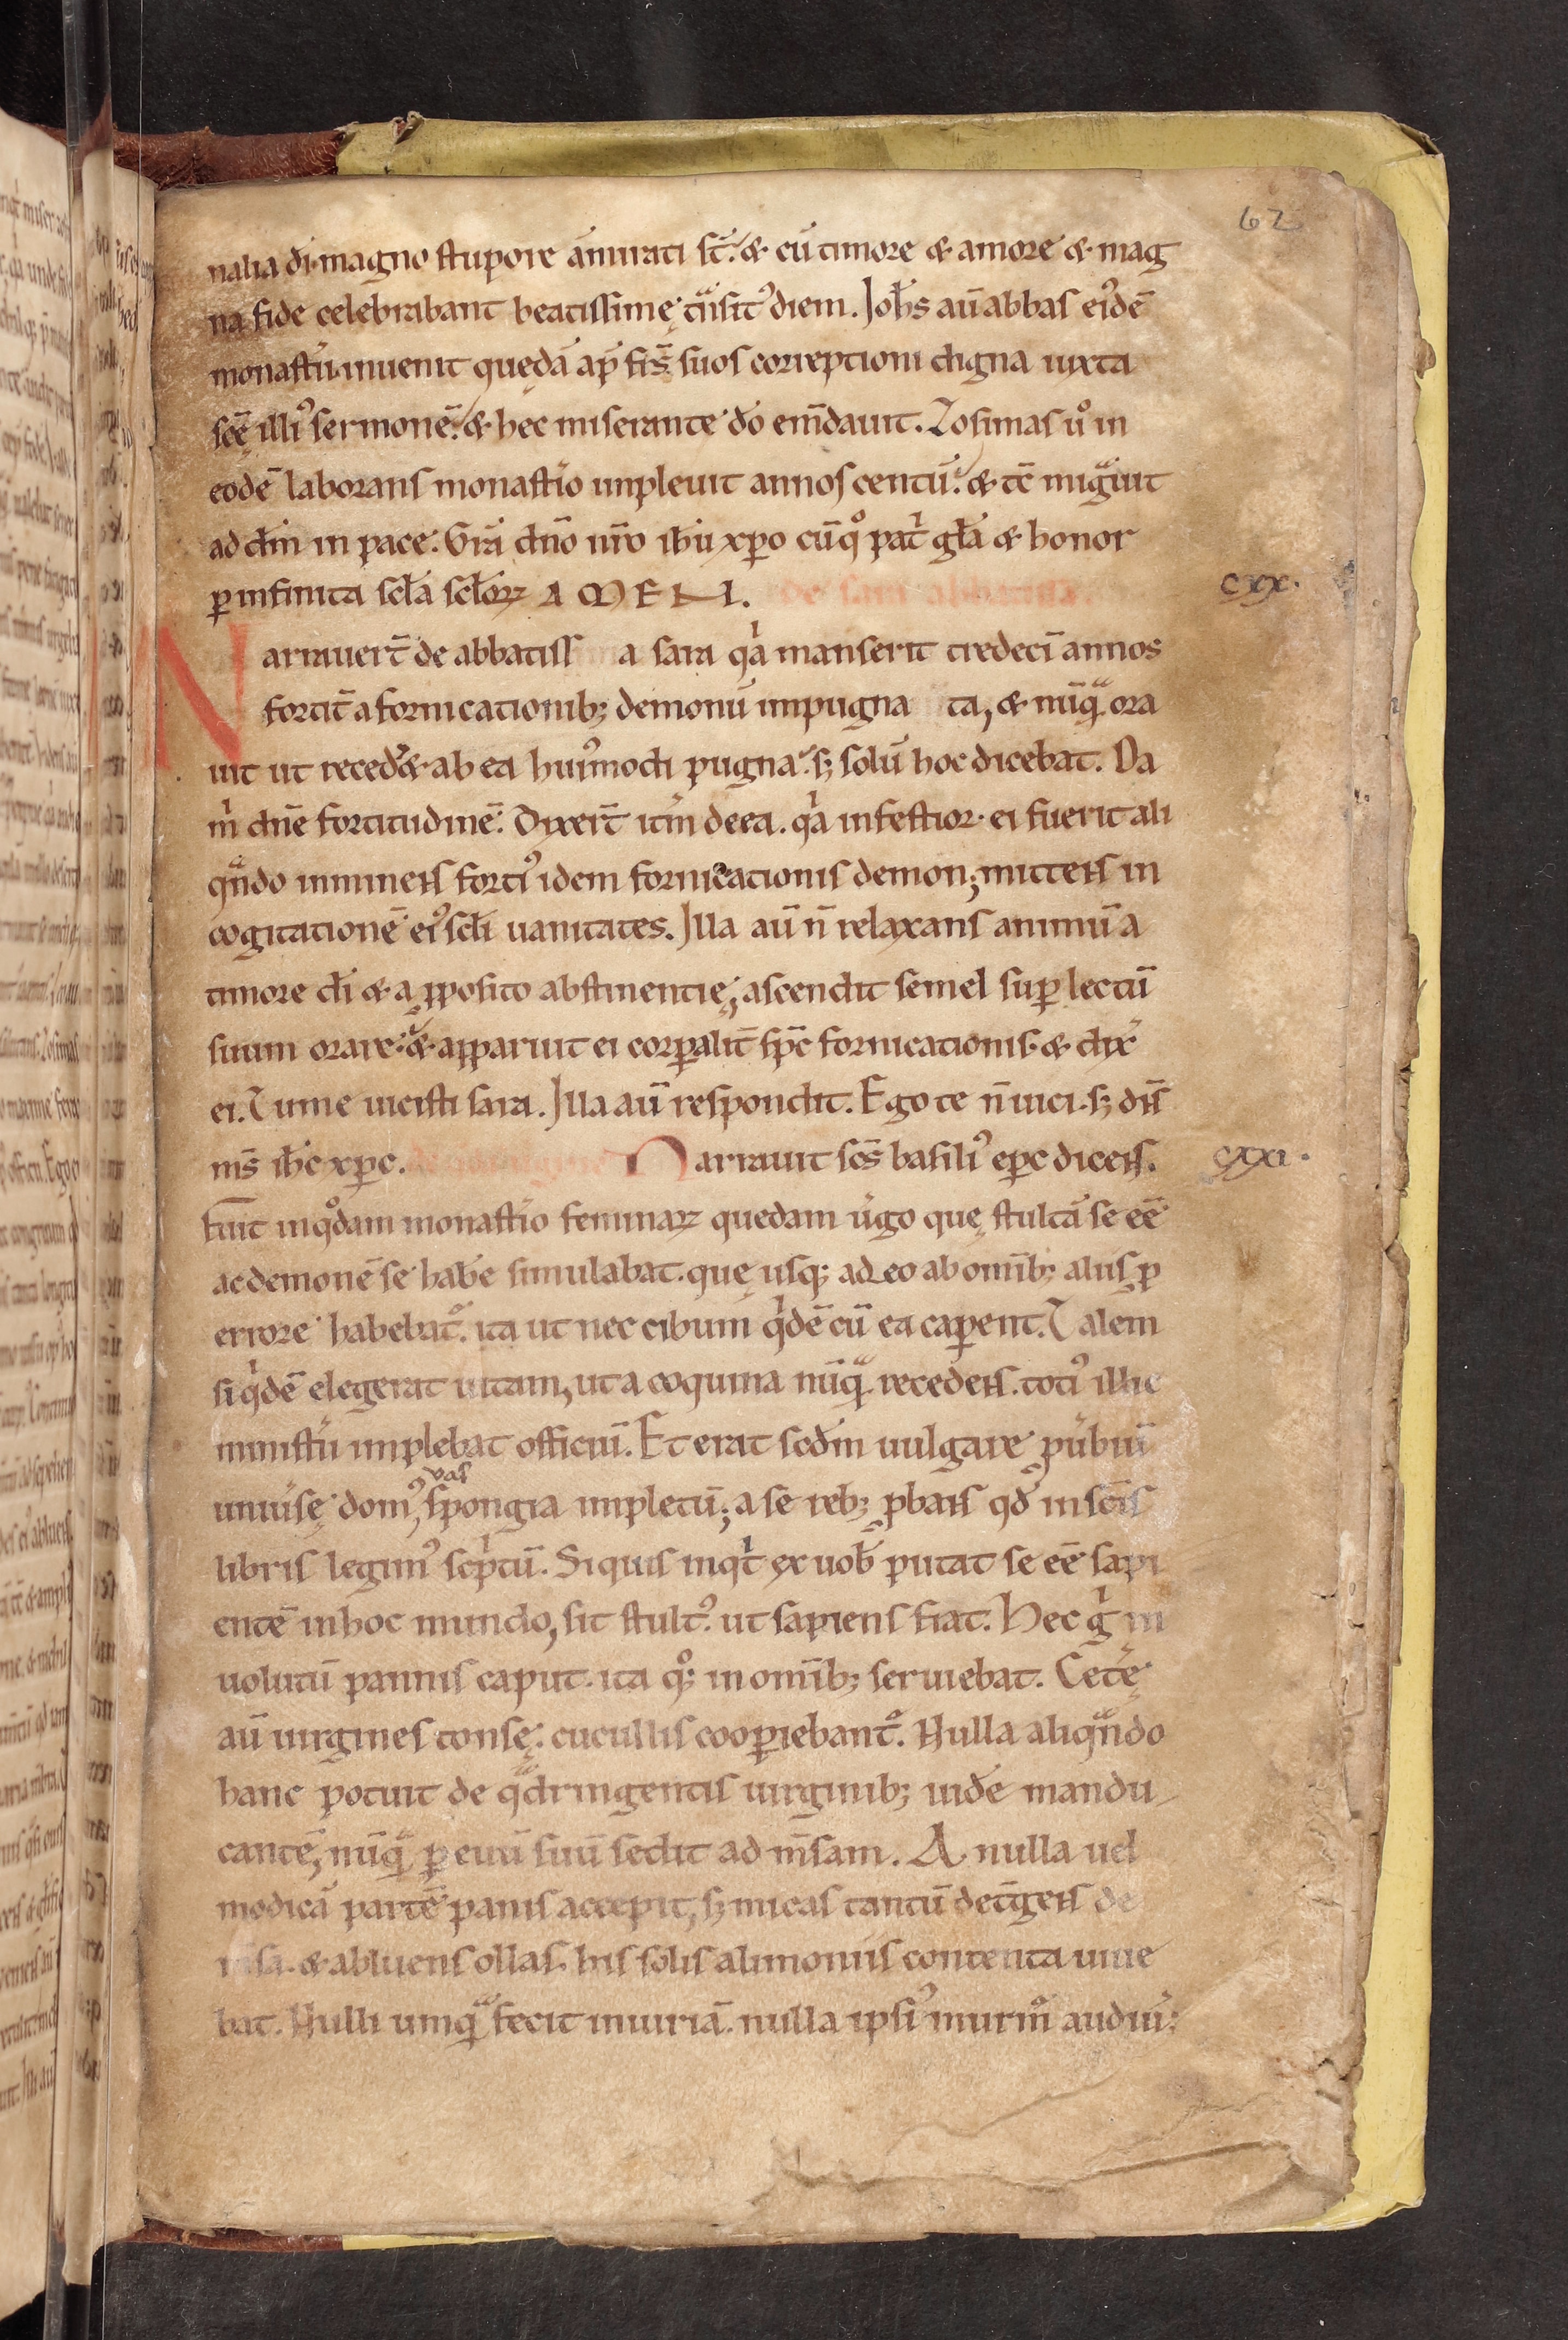 62
nalia di͛. magno stupore am̄irati st̄. & cū timore & amore & mag
na fide celebrabant beatissimę tnͣsitꝰ diem. Ioh̄s aū abbas eiꝰdē
monast̄ii inuenit quędā ap̄ fr̄s suos correptioni digna iuxta
sc̄ę illiꝰ sermonē. & hec miserante dō em̄dauit. Zosimas uͦ in
eodē laborans monast̄io impleuit annos centū. & tc̄ migͣuit
ad dn̄m in pace. Grā dn̄o nr̄o ih̄u xp̄o cū qͦ patⁱ gl̄a & honor
ꝑ infinita sc̄la sc̄loꝝ AMEN. De sara abbatissa. cxx.
Narrauer̄t de abbatissa sara qⁱa manserit tredecī annos
fortit̄ a fornicationibꝫ demonū impugnata, & nūqͣ ora
uit ut recedͥet ab ea huiꝰmodi pugna. sꝫ solū hoc dicebat. Da
mⁱ dn̄e fortitudinē. Dixer̄t itm̄ de ea. qⁱa infestior ei fuerit ali
qͣndo imminens fortiꝰ idem fornicationis demon; mittens in
cogitationē eiꝰ scl̄i uanitates. Illa aū n̄ relaxans animū a
timore di͛ & a ꝓposito abstinentię; ascendit semel suꝑ lectū
suum orare. & apparuit ei corꝑalit̄ sp̄c fornicationis. & dix̄
ei. Tu me uicisti sara. Illa aū respondit. Ego te n̄ uici. sꝫ dn̄s
ms̄ ih̄c xp̄c. Narrauit sc̄s basiliꝰ ep̄c dicens. cxxi.
Fuit in qͦdam monast̄io feminaꝝ quedam uⁱgo quę stultā se eē
ac demonē se hab̄e simulabat. quę usqꝫ adeo ab omībꝫ aliis ꝑ
errore habebatͦ. ita ut nec cibum qⁱdē cū ea caꝑent. Talem
siqⁱdē elegerat uitam, ut a coquina nūqͣ recedens. totiꝰ illic
minist̄ii implebat officiū. Et erat scd̄m uulgare ꝓubiū
uniūsę domꝰ, vas spongia impletū; a se rebꝫ ꝓbans qd̄ in sc̄is
libris legimꝰ scⁱptū. Siquis inqⁱt ex uob̄ putat se eē sapi
entē in hoc mundo, sit stultꝰ. ut sapiens fiat. Hec gⁱ in
uolutū pannis caput. ita qͦqꝫ in omībꝫ seruiebat. Cet̄ę
aū uirgines tonsę. cucullis cooꝑiebantͦ. Nulla aliqͣndo
hanc potuit de qͣdringentis uirginibꝫ uid̄e mandu
cantē, nūqͣ ꝑ euū suū sedit ad m̄sam. A nulla uel
modicā partē panis accepit, sꝫ micas tantū det̄gens de
msa. & abluens ollas. his solis alimoniis contenta uiue
bat. Nulli umqͣ fecit iniuriā. nulla ipsiꝰ murmͦ audiuⁱ: